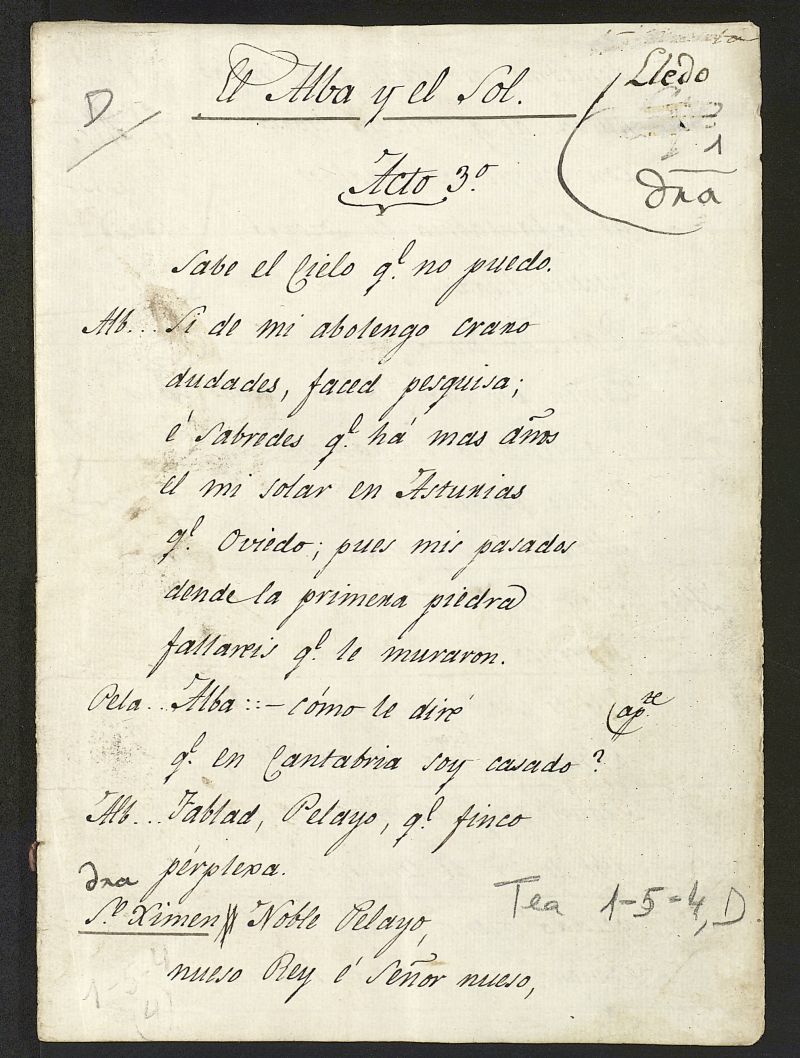 El Alba y el Sol.
Lledo
1
dña
D
Acto 3.º
Sabe el Cielo q.e no puedo.
Alb... Si de mi abolengo crano
dudades, faced pesquisa;
é Sabredes q.e há mas años
el mi solar en Asturias
q.e Oviedo; pues mis pasados
dende la primera piedra
fallareis q.e le muraron.
Pela.. Alba::- cómo le diré (ap.te
q.e en Cantabria soy casado?
Alb... Fablad, Pelayo, q.e finco
pérplexa.
dña
S.e Ximen Noble Pelayo,
nueso Rey é Señor nueso,
Tea 1-5-4, D
1-5-4
4)